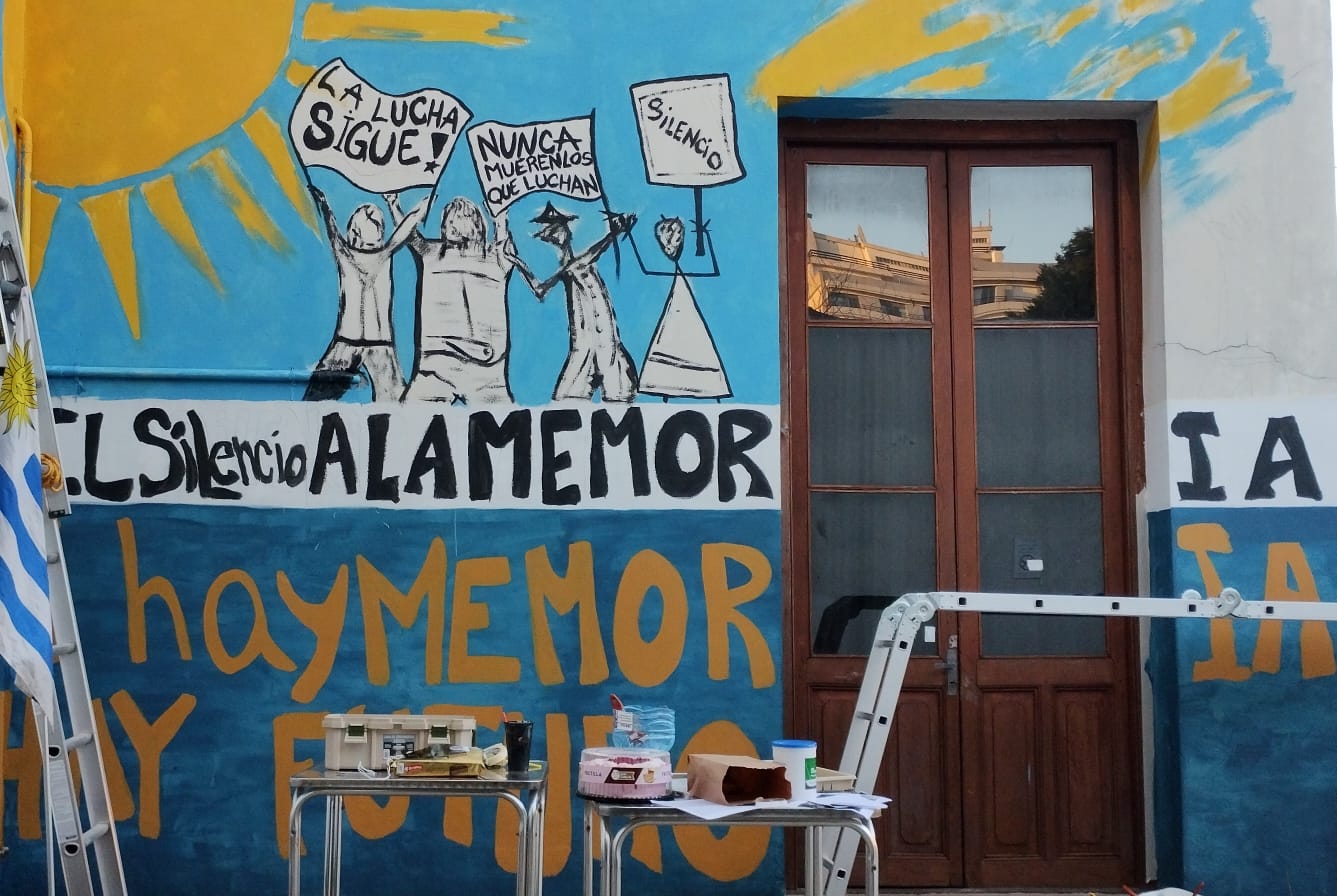 LA LUCHA
SIGUE!
NUNCA
MUEREN LOS
QUE LUCHAN
SILENCIO
EL SiLencio A LA MEMORIA
hay MEMORIA
HAY FUTURO